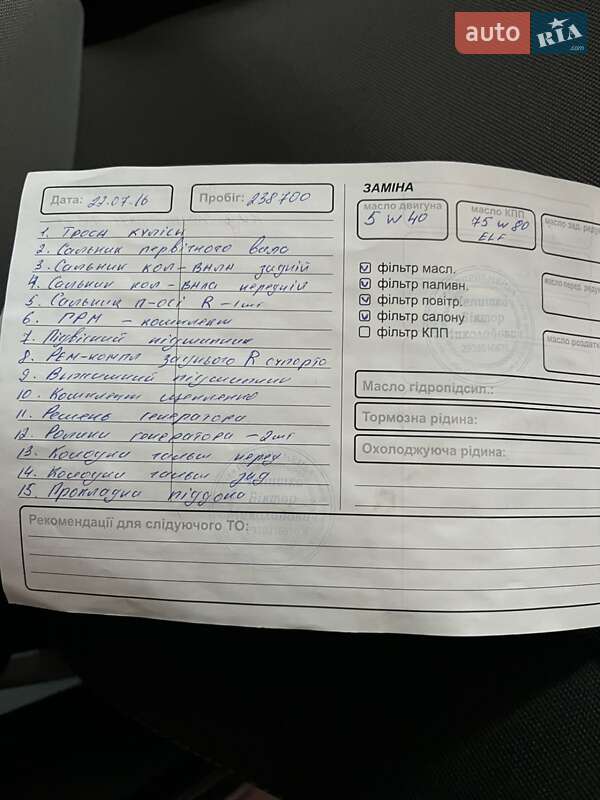 auto RIA .com
Дата: 22.07.16
Пробіг: 238700
1. Троси куліси
2. Сальник первічного вала
3. Сальник кол-вала задній
4. Сальник кол-вала передній
5. Сальник п-осі R - 1 шт
6. ГРМ - комплект
7. Підвісний підшипник
8. Рем-компл заднього R супорта
9. Вижимний підшипник
10. Комплект щеплення
11. Ремень генератора
12. Ролики генератора - 2 шт
13. Колодки гальм перед
14. Колодки гальм зад
15. Прокладка піддона
ЗАМІНА
масло двигуна
5 w 40
масло КПП
75 w 80
ELF
масло зад.
масло перед.
фільтр масл.
фільтр паливн.
фільтр повітр.
фільтр салону
фільтр КПП
Масло гідропідсил.:
Тормозна рідина:
Охолоджуюча рідина:
Рекомендації для слідуючого ТО:
Віктор
Віктор